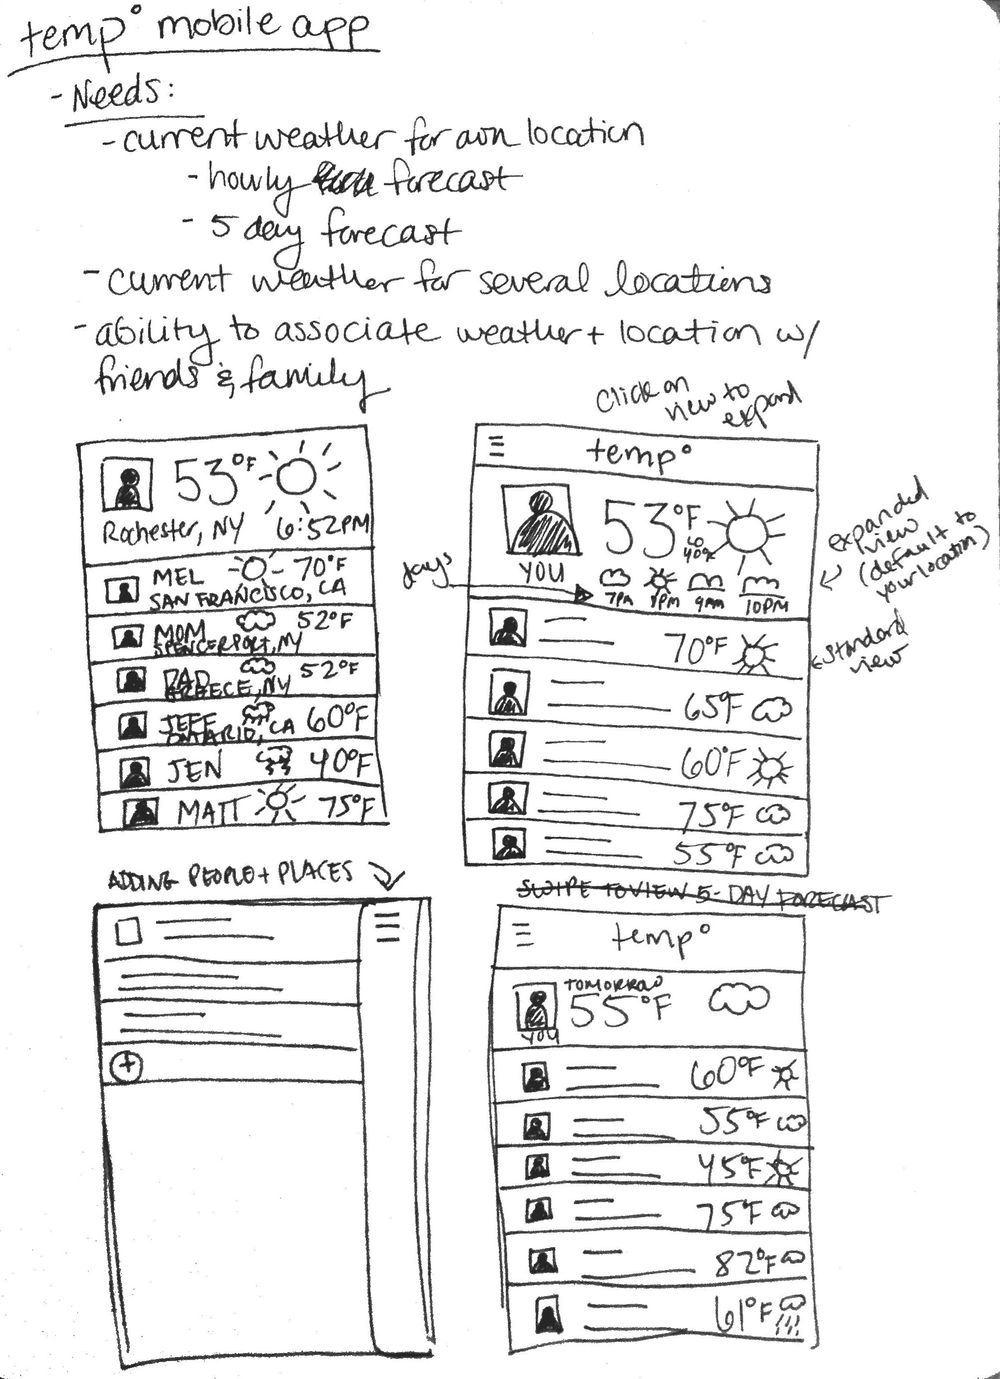 temp° mobile app
- Needs:
- current weather for own location
- hourly forecast
- 5 day forecast
- current weather for several locations
- ability to associate weather + location w/
friends & family
53°F
Rochester, NY 6:52PM
MEL 70°F
SAN FRANCISCO, CA
MOM 52°F
SPENCERPORT, NY
DAD 52°F
GREECE, NY
JEFF 60°F
ONTARIO, CA
JEN 40°F
MATT 75°F
click on
view to
expand
temp°
53°F
YOU
days
7PM 8PM 9AM 10PM
70°F
65°F
60°F
75°F
55°F
expanded
view
(default to
your location)
standard
view
ADDING PEOPLE + PLACES
SWIPE TO VIEW 5-DAY FORECAST
temp°
TOMORROW
55°F
YOU
60°F
55°F
45°F
75°F
82°F
61°F